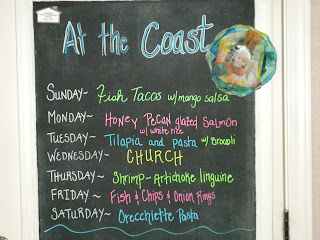 At the Coast
SUNDAY~ Fish Tacos w/mango salsa
MONDAY~ HONEY PECAN glazed SALMON
w/ white rice
TUESDAY~ Tilapia and pasta w/ Broccoli
WEDNESDAY~ CHURCH
THURSDAY~ Shrimp-Artichoke linguine
FRIDAY~ Fish & Chips & Onion Rings
SATURDAY~ Orecchiette Pasta